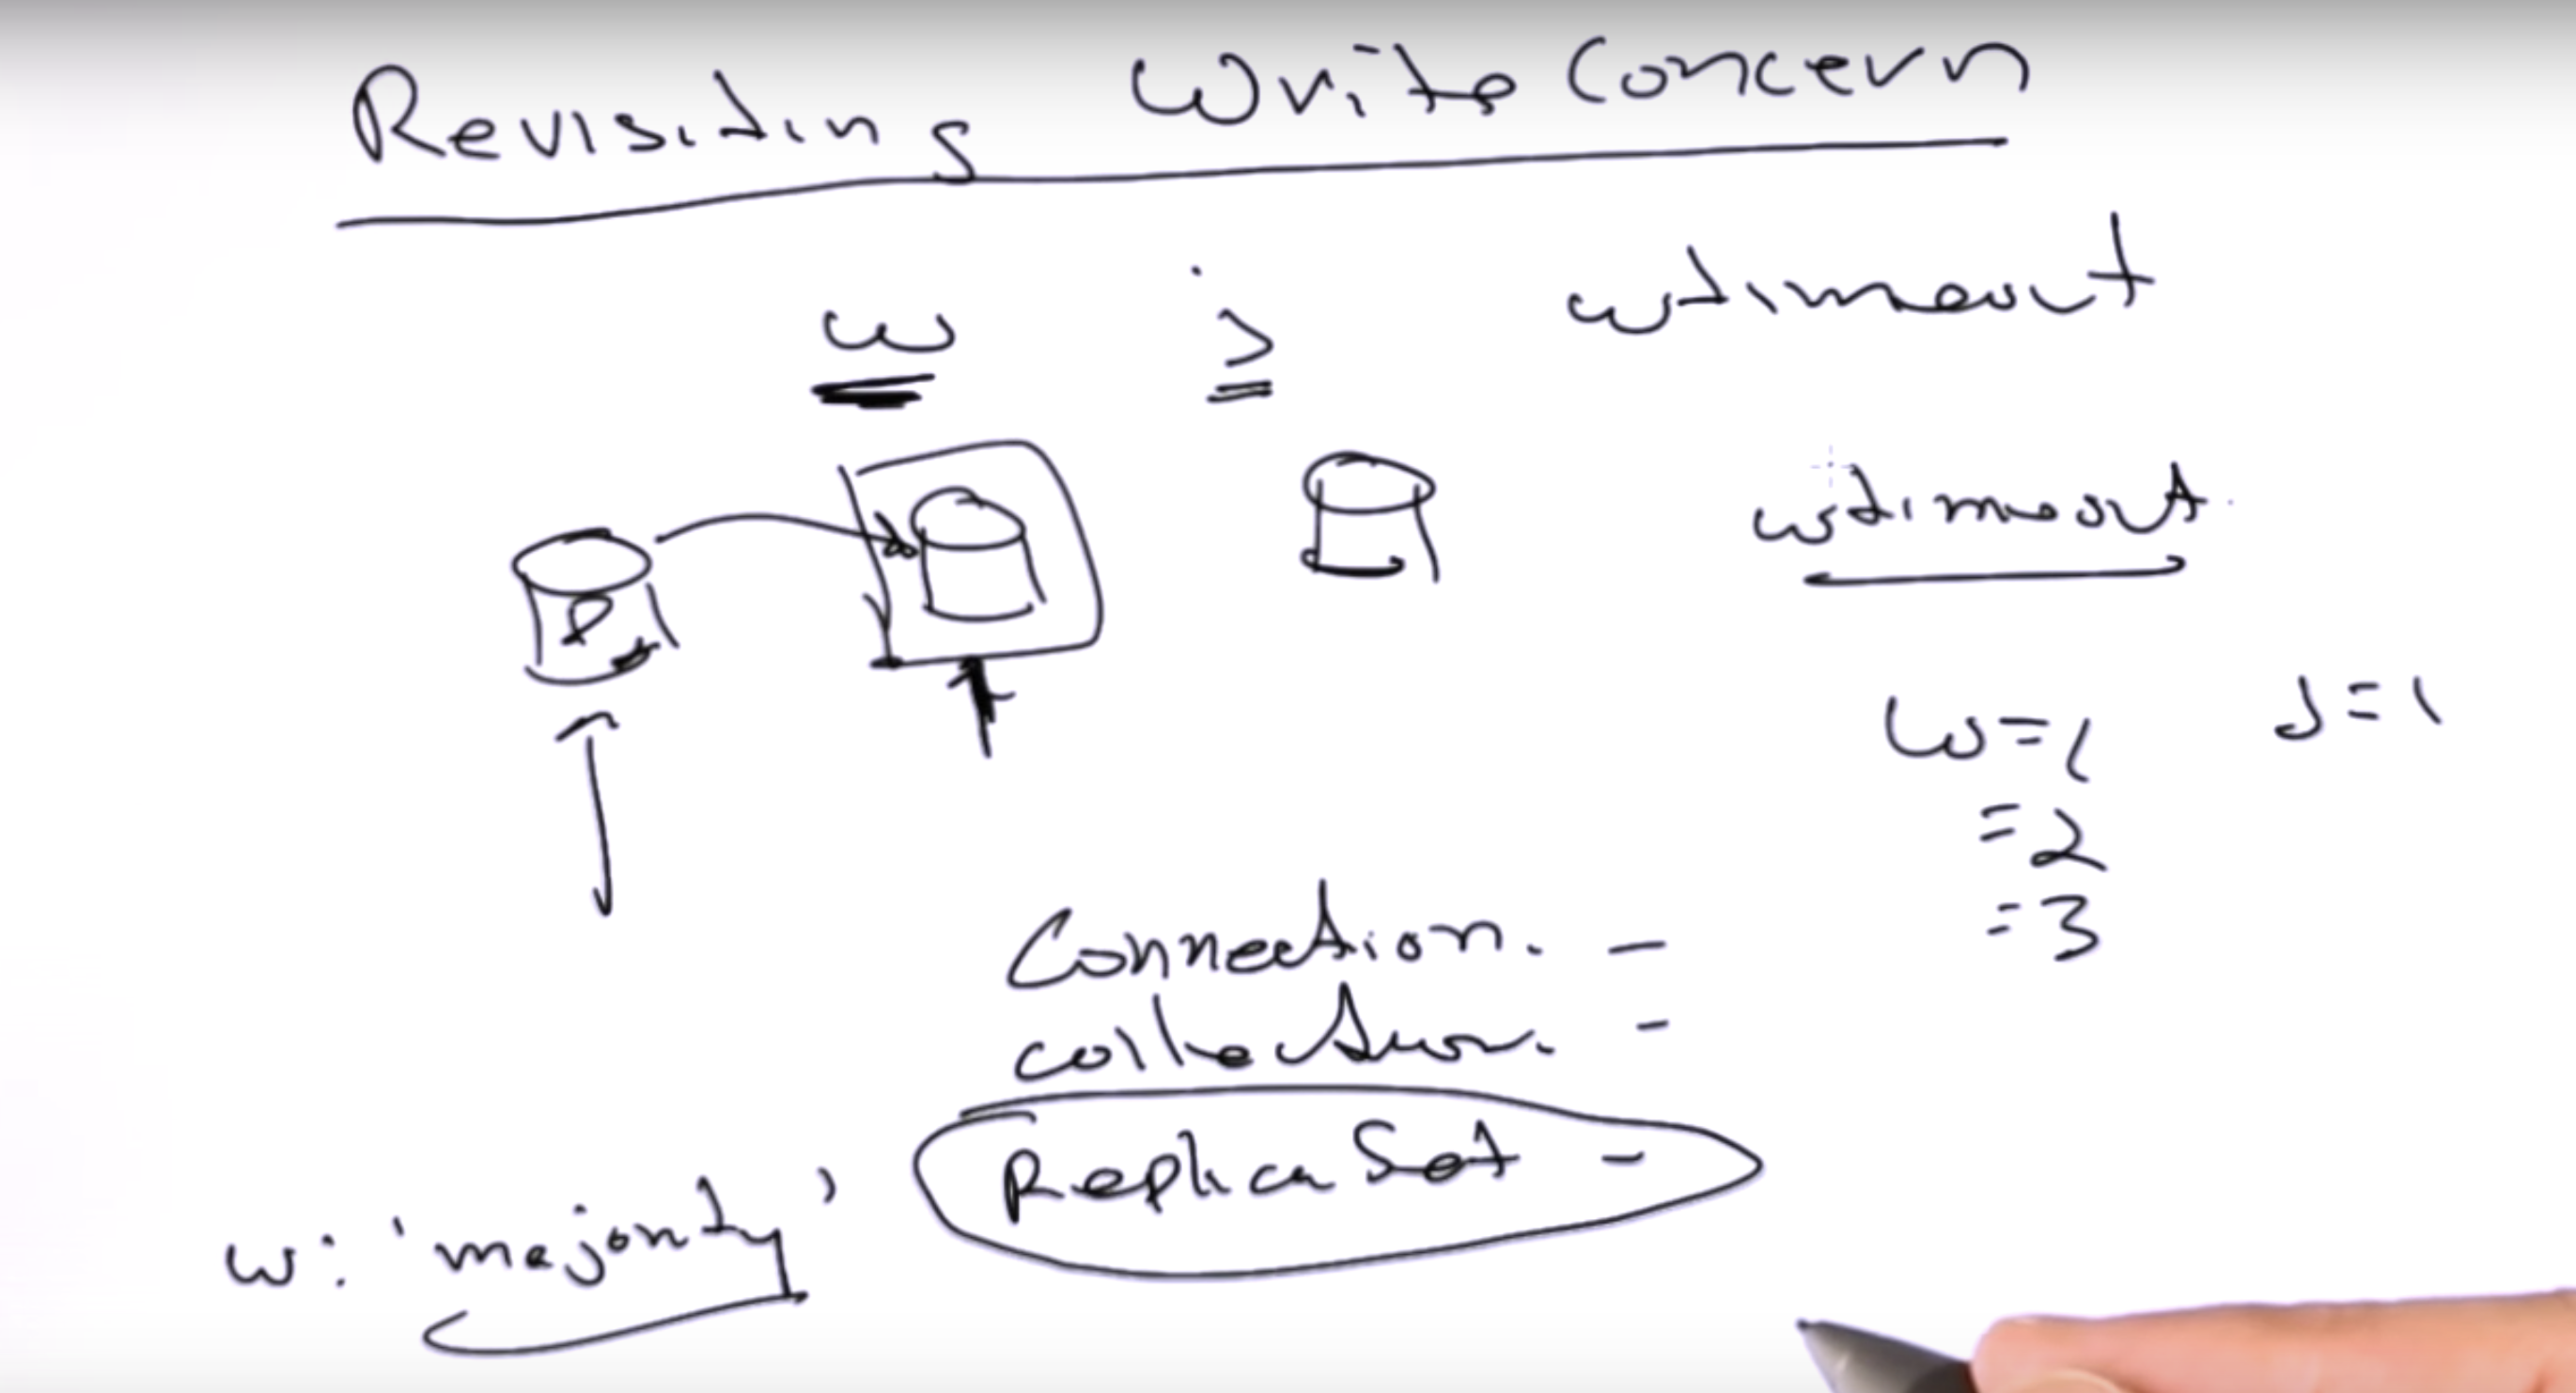 Revisiting Write Concern
w j wtimeout
wtimeout
P
w=1 J=1
=2
=3
Connection. -
collection. -
Replica Set -
w: 'majority'